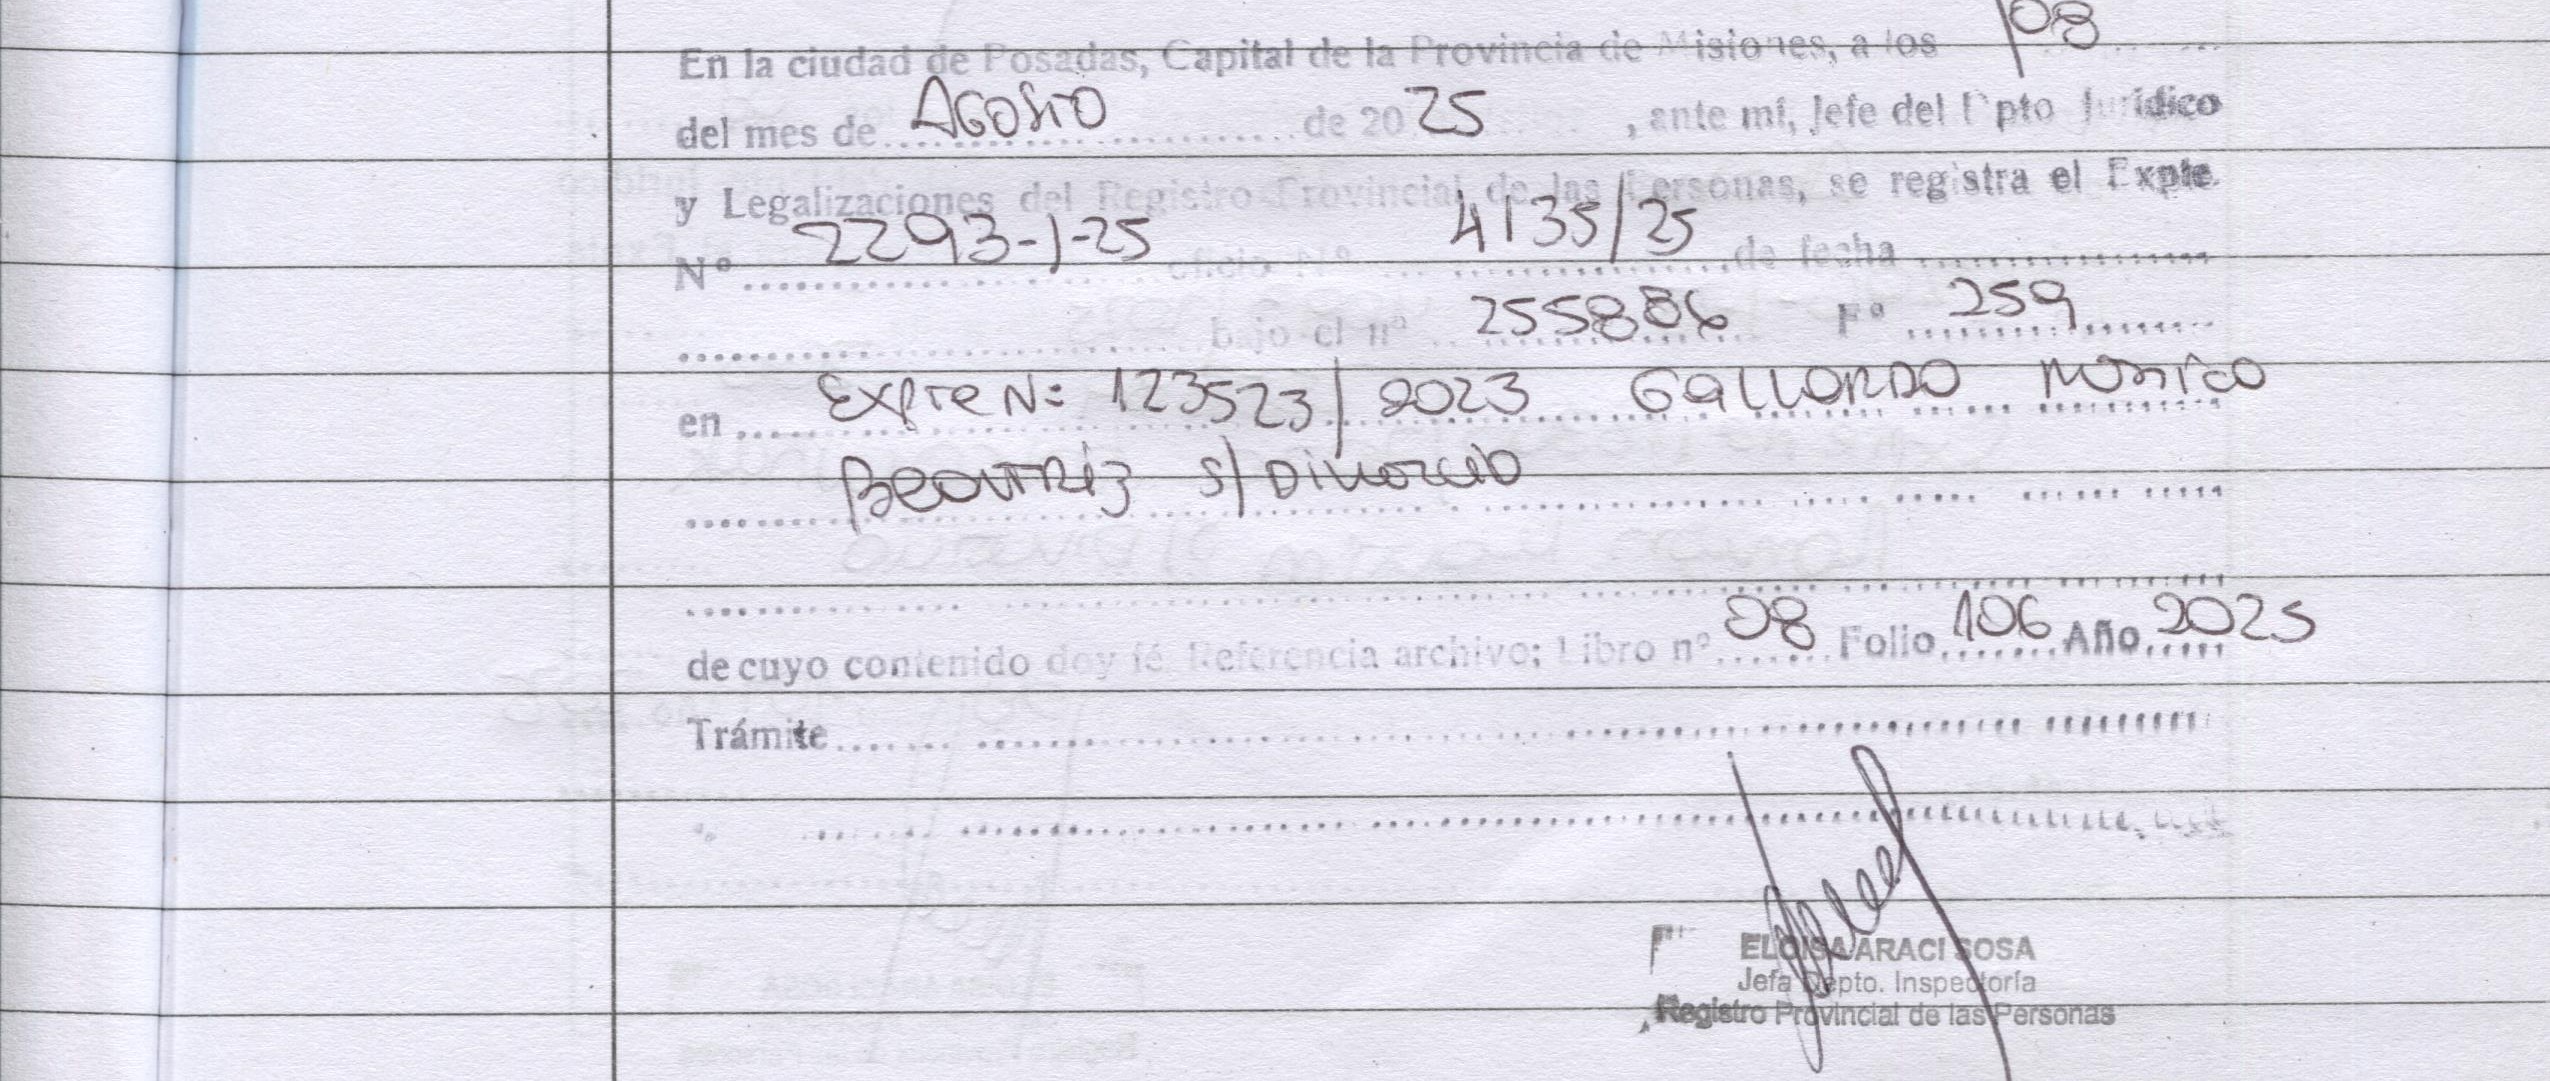 En la ciudad de Posadas, Capital de la Provincia de Misiones, a los 08
del mes de AGOSTO de 2025, ante mí, Jefe del Dpto Jurídico
y Legalizaciones del Registro Provincial de las Personas, se registra el Expte.
Nº 2293-J-25 oficio Nº 4135/25 de fecha
bajo el nº 255886 Fº 259
en Expte N: 123523/2023 GALLARDO MONICA
BEATRIZ S/ DIVORCIO
de cuyo contenido doy fé. Referencia archivo; Libro nº 08 Folio 106 Año 2025
Trámite
ELOISA ARACI SOSA
Jefa Depto. Inspectoría
Registro Provincial de las Personas